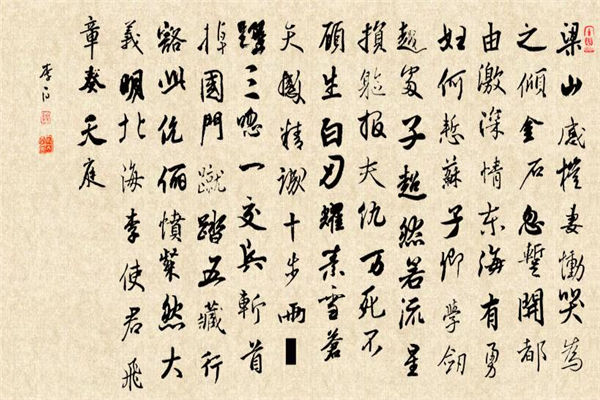 梁山感妻慟哭為
之傾金石忽蹔開都
由激深情東海有勇
婦何慙蘇子卿學劍
越處子超然若流星
損軀報夫仇万死不
顧生白刃耀素雪蒼
天感精誠十步兩
躍三呼一交兵斬首
掉國門蹴踏五藏行
豁此伉儷憤粲然大
義明北海李使君飛
章奏天庭
李白